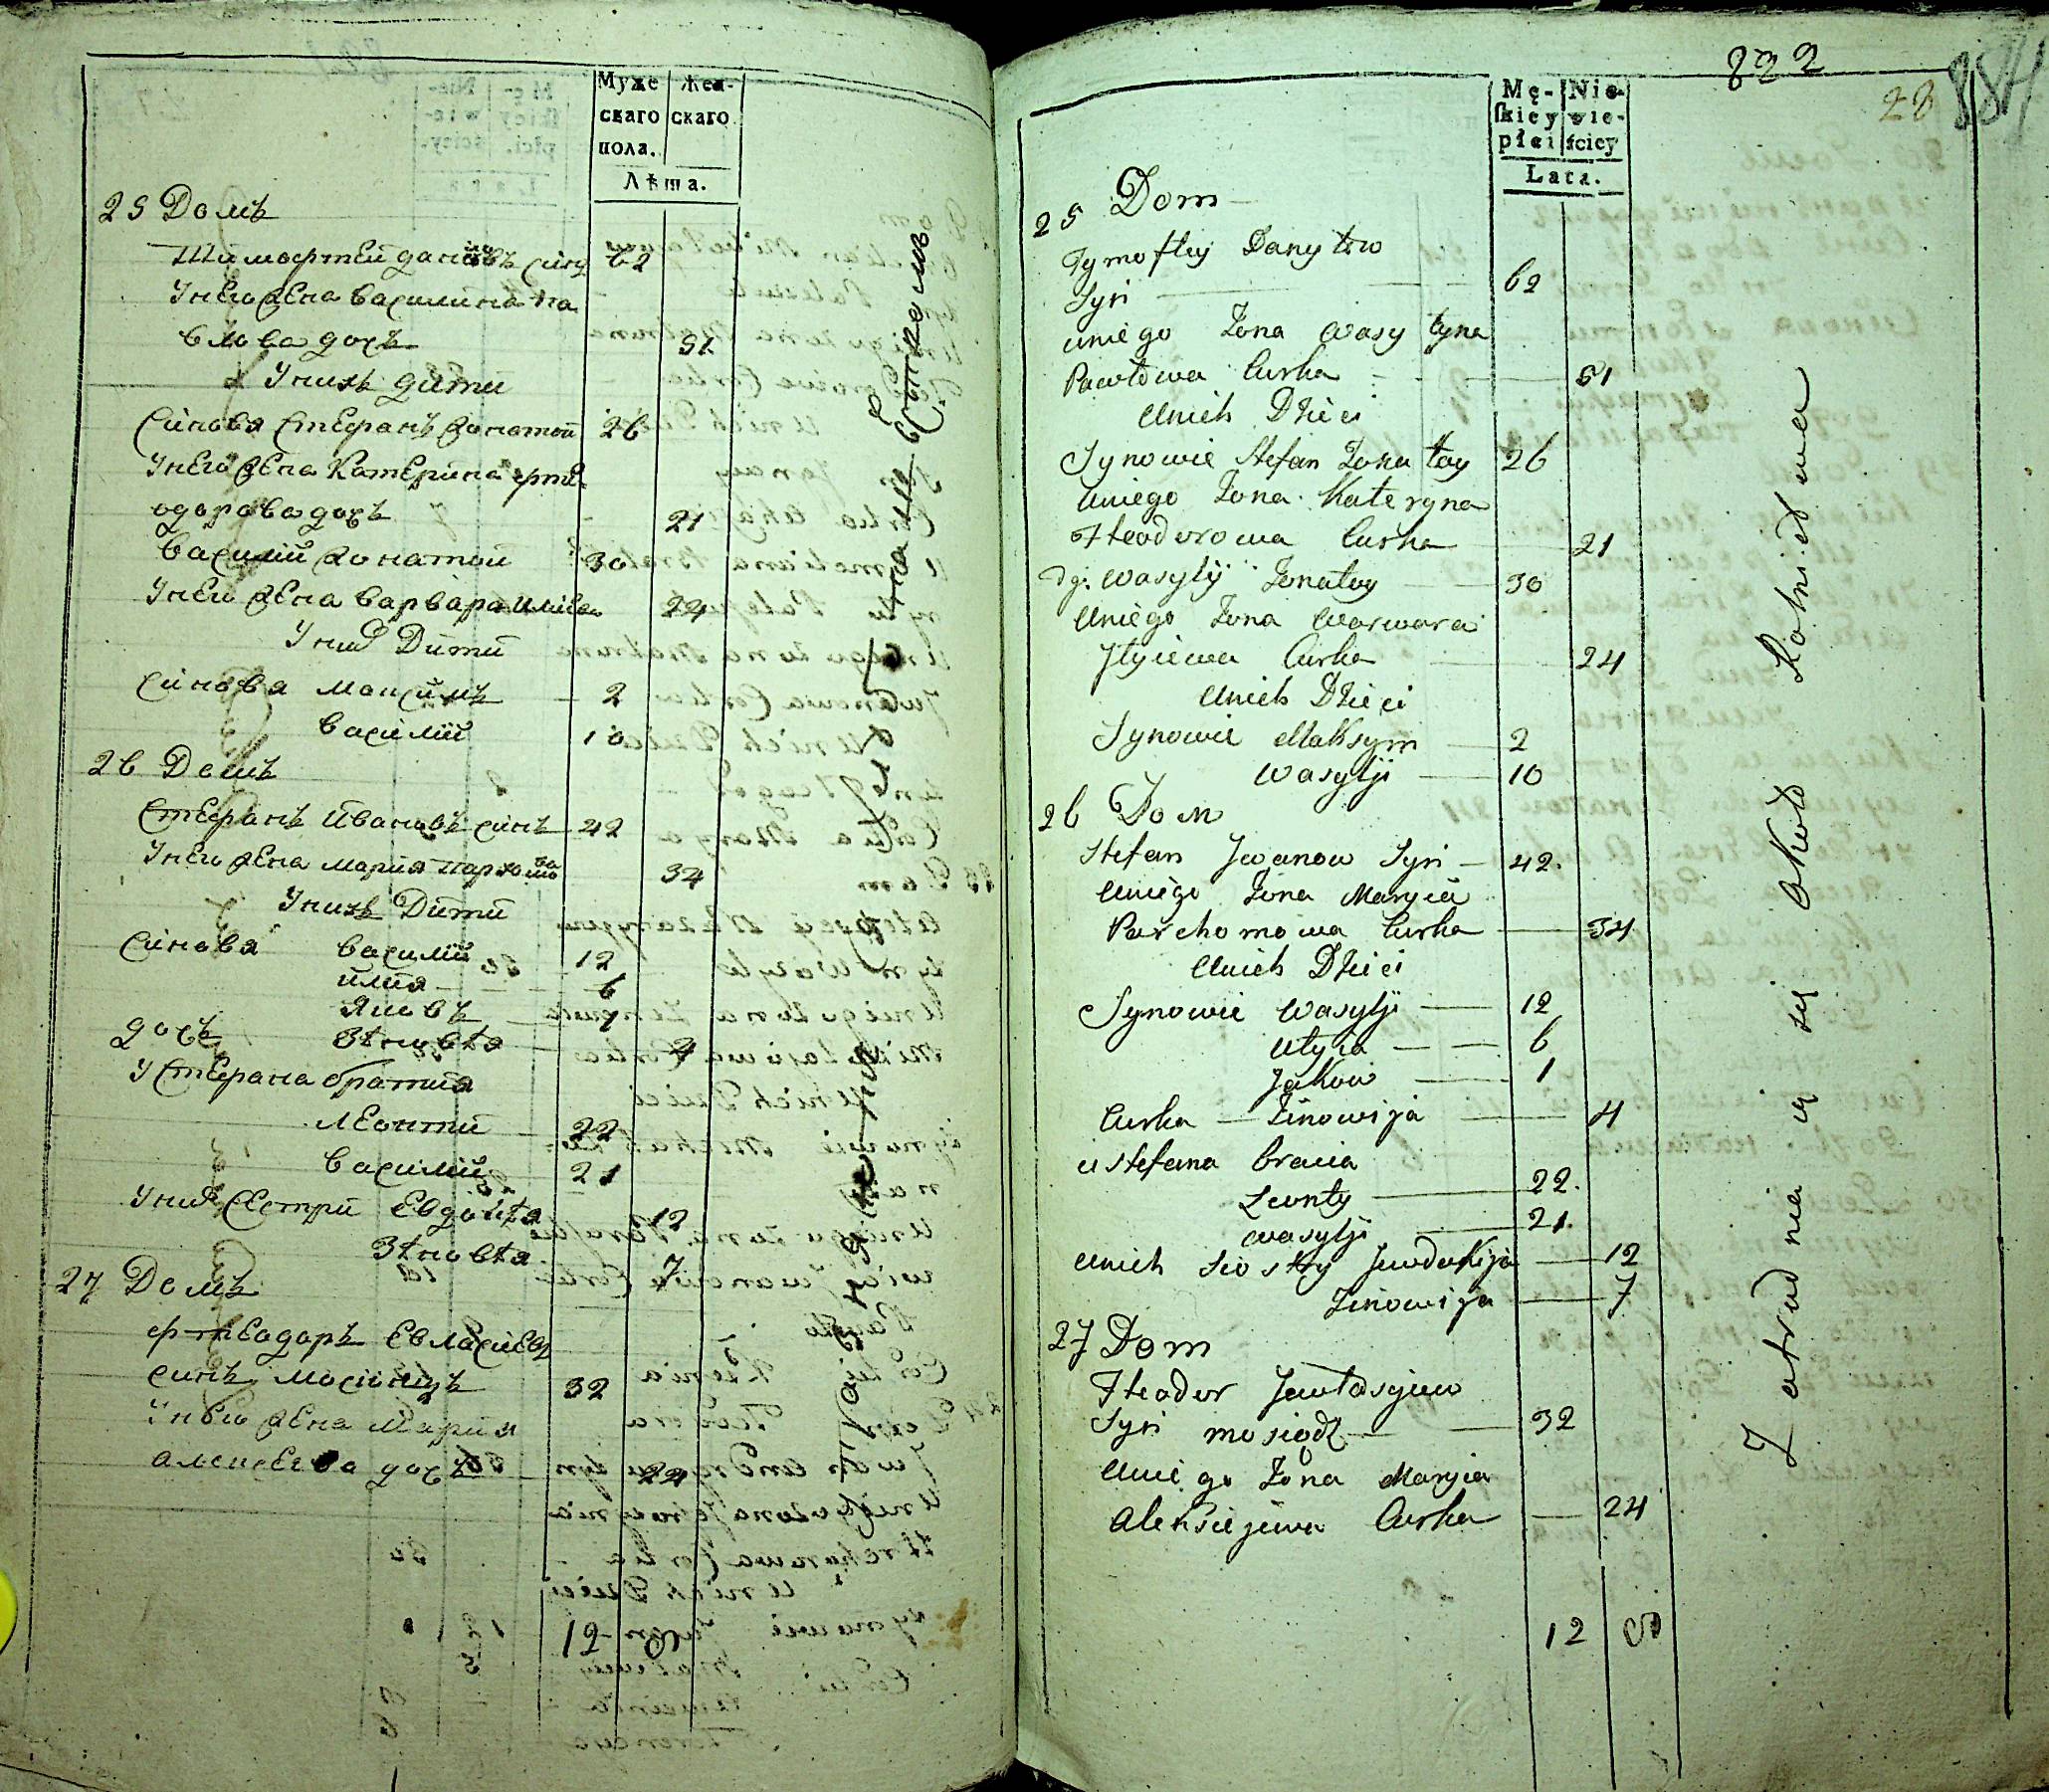 Муже Жен-
скаго скаго
пола.
Лѣта.
25 Домъ
Тимофтей даниловъ синъ 62
Унего жена василина па
влова дочъ 51
Унихъ дити
Синовя Стефанъ жонатой 26
Унего жена Катерина фте
одорова дочъ 21
василий жонатой 30
Унего жена варвара илиева 24
Уних Дити
Синовя максимъ 2
василий 10
26 Домъ
Стефанъ ивановъ синъ 42
Унего жена мария пархомова 34
Унихъ Дити
Синовя василий 12
илия 6
яковъ 1
дочъ Зѣновѣя 4
У Стефана братия
леонтий 22
василий 21
Уних Сестри Евдокѣя 12
Зѣновѣя 7
27 Домъ
фтеодоръ Евласиевъ
синъ мосіондзъ 32
Унего жена Мария
алексеева дочъ 24
12 9
822
28
884
Mę- Nie-
skiey wie-
płci ściey
Lata.
25 Dom
Tymoftey Danyłow
Syn 62
uniego Żona Wasyłyna
Pawłowa Curka 51
Unich Dzieci
Synowie Stefan Żonatoy 26
Uniego Żona Kateryna
Fteodorowa Curka 21
dg. Wasylÿ Żonatoy 30
Uniego Żona Warwara
Iłyiewa Curka 24
Unich Dzieci
Synowie Maksym 2
Wasylji 10
26 Dom
Stefan Jwanow Syn 42.
Uniego Żona Maryia
Parchomowa Curka 34
Unich Dzieci
Synowie Wasylji 12
Iłyia 6
Jakow 1
Curka Zinowija 4
u Stefana bracia
Leonty 22.
Wasylji 21.
Unich Siostry Jewdokija 12
Zinowija 7
27 Dom
Fteodor Jewłasyiew
Syn mosiądz 32
Uniego Żona Maryia
Aleksiejewa Curka 24
12 9
Zatrudnia ią się około Rolnictwa